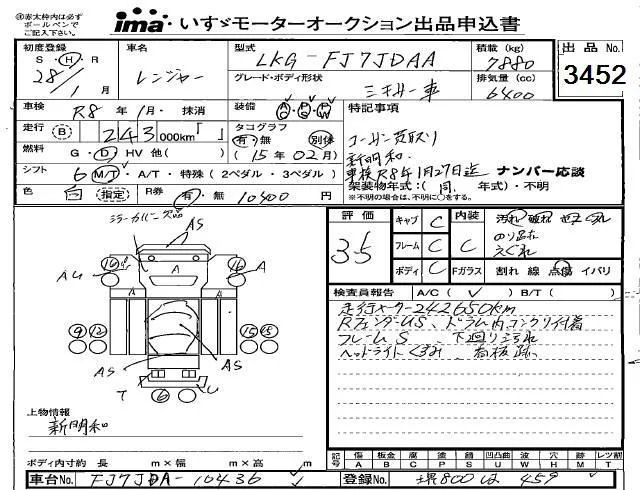 ◎赤太枠内は必ず
ボールペンで
ご記入下さい。
ima いすゞモーターオークション出品申込書
初度登録 車名 型式 積載 (kg) 出品No.
S・H・R レンジャー LKG-FJ7JDAA 7880 3452
28/1月 グレード・ボディ形状 三キサー車 排気量 (cc) 6400
車検 R8年1月・抹消 装備 AC PS PW 特記事項
走行 B 243,000km「 」 タコグラフ
有・無 別体
燃料 G・D・HV 他( ) (15年02月)
新明和
シフト 6 M/T・A/T・特殊(2ペダル・3ペダル) 車検R8年1月27日迄 ナンバー応談
架装物年式:(同. 年式)・不明
※不明の場合は、不明に○をする。
色 白 指定 R券 有・無 10400円
評価 3.5
キャブ C 内装 C 汚れ 破れ
フレーム C のり品在
ボディ C Fガラス 割れ 線 点傷 イバリ
えぐれ
検査員報告 A/C( ) B/T( )
走行メーター242650km
RフェンダーUS、ドラム内コンクリ付着
フレームS、下廻りヨゴれ
ヘッドライトくすみ、
ミラーカバー欠品
AS
AS
A
A
16
16
A
9 12
15 15
AS
AS
T 6 U
上物情報
新明和
ボディ内寸約 長 m×幅 m×高 m
記号 傷A 板金B 腐C 塗P 錆S 凹凸曲U 波W 穴H 跡M レツ割T
車台No. FJ7JDA-10436 登録No. 堺800は459